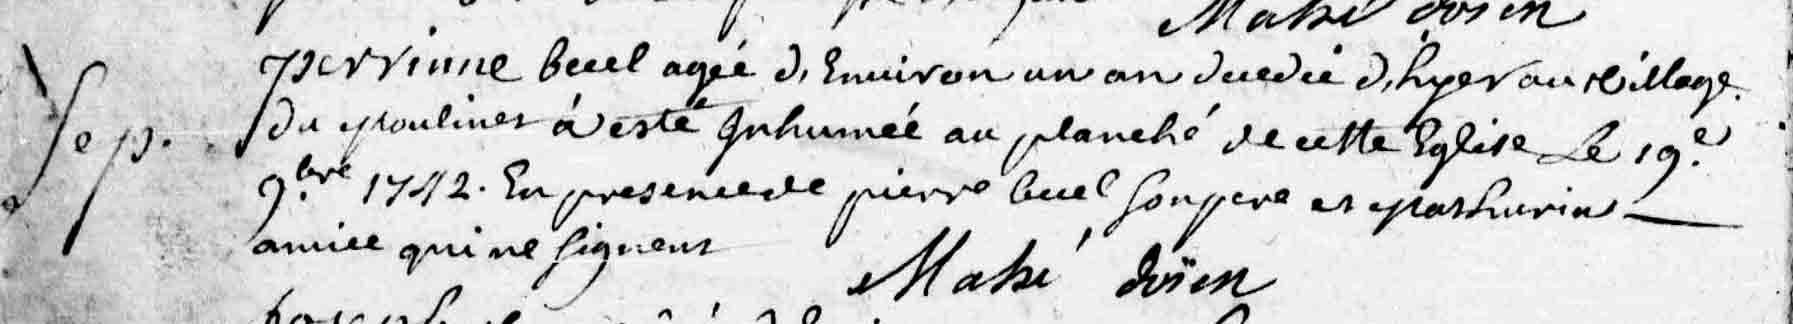 Mahé doïen
perrinne buel agéé d'Environ un an decedéé d'hyer au village
du moulinet à esté Inhuméé au planché de cette Eglise Le 19.e
Sep.
9.bre 1742. En presence de pierre buel Son pere et Mathurin
amice qui ne Signent
Mahé doïen